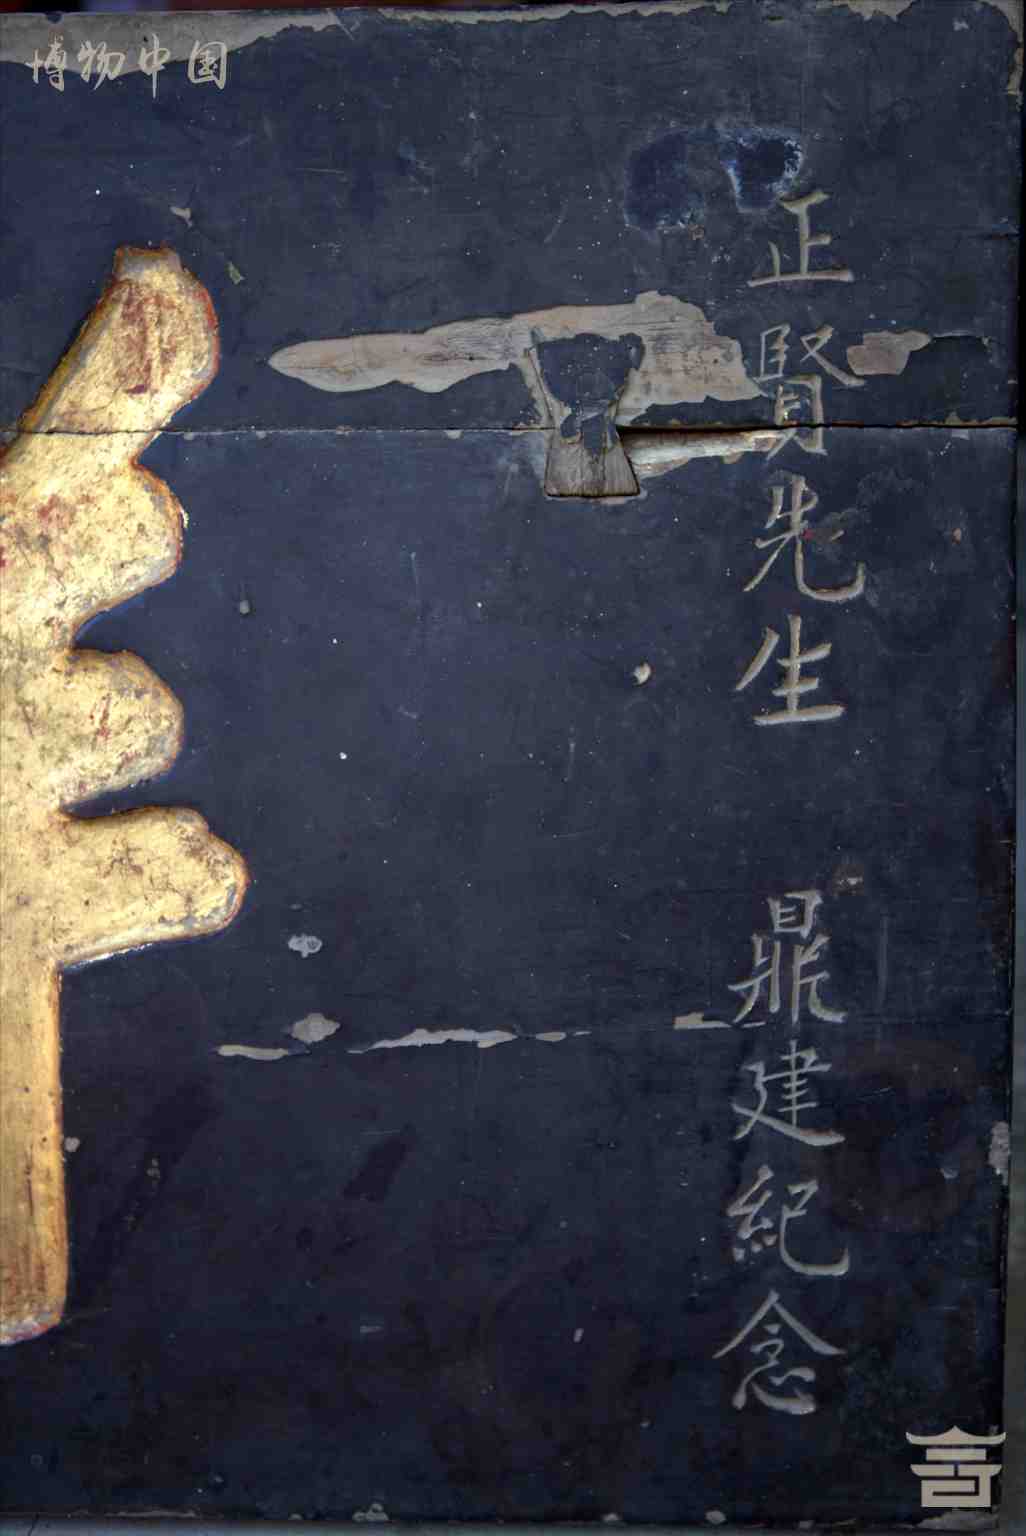 博物中国
正賢先生 鼎建紀念